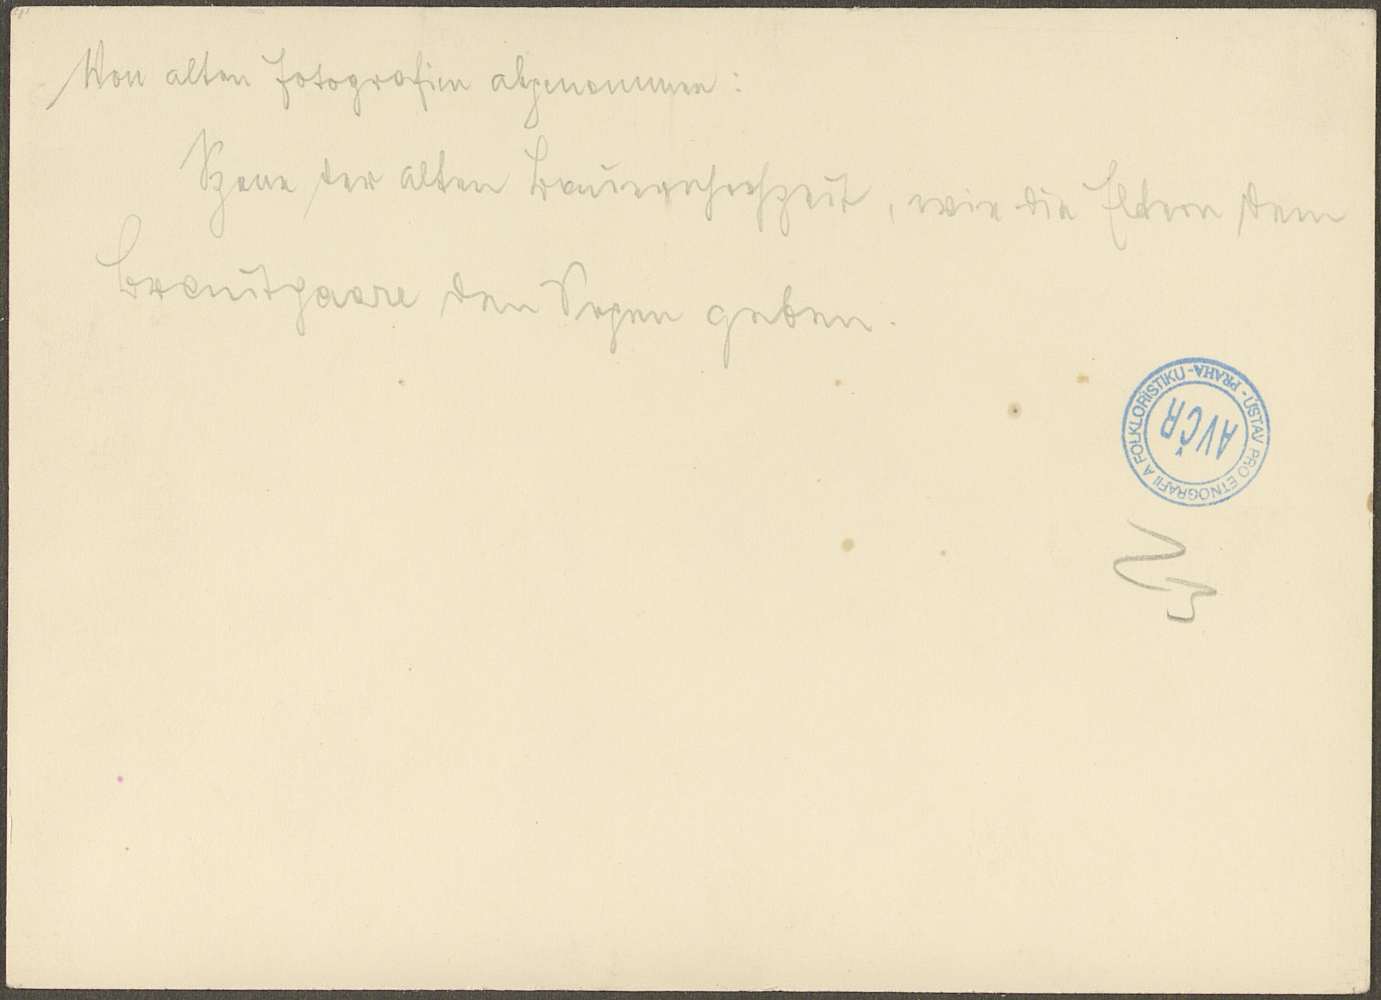 Von alten Fotografien abgenommen:
Szene der alten Bauernhochzeit, wie die Eltern dem
Brautpaare den Segen geben.
ÚSTAV PRO ETNOGRAFII A FOLKLORISTIKU - PRAHA -
AVČR